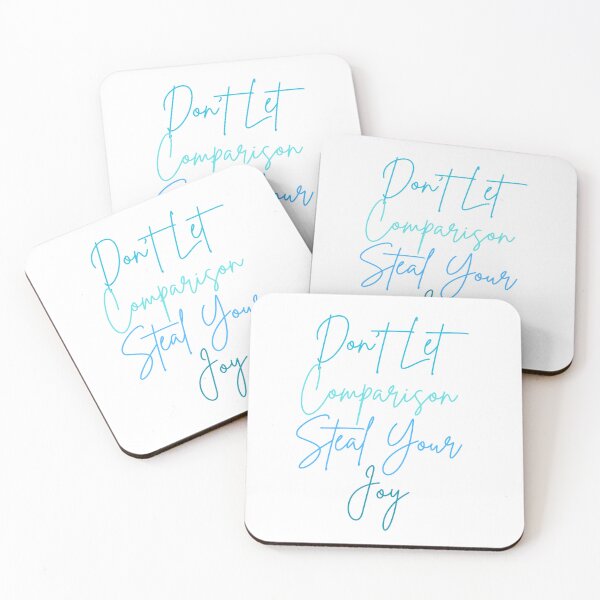 Don't Let
Comparison
Don't Let
Comparison
Steal Your
Don't Let
Comparison
Steal Your
Joy
Don't Let
Comparison
Steal Your
Joy